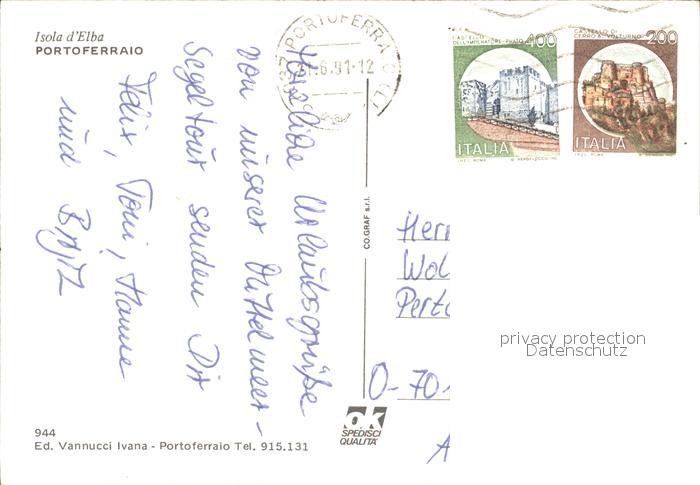 Isola d'Elba
PORTOFERRAIO
PORTOFERRA
.6.91-12
CASTELLO
DELL'IMPERATORE-PRATO 400
ITALIA
CASTELLO DI
CERRO AL VOLTURNO 200
ITALIA
Herzliche Urlaubsgrüße
von unserer Mittelmeer-
Segeltour senden Dir
Felix, Toni, Hanne
und
CO.GRAF s.r.l.
Her
Wol
Perto
O-70
A
privacy protection
Datenschutz
ok
SPEDISCI
QUALITA'
944
Ed. Vannucci Ivana - Portoferraio Tel. 915.131